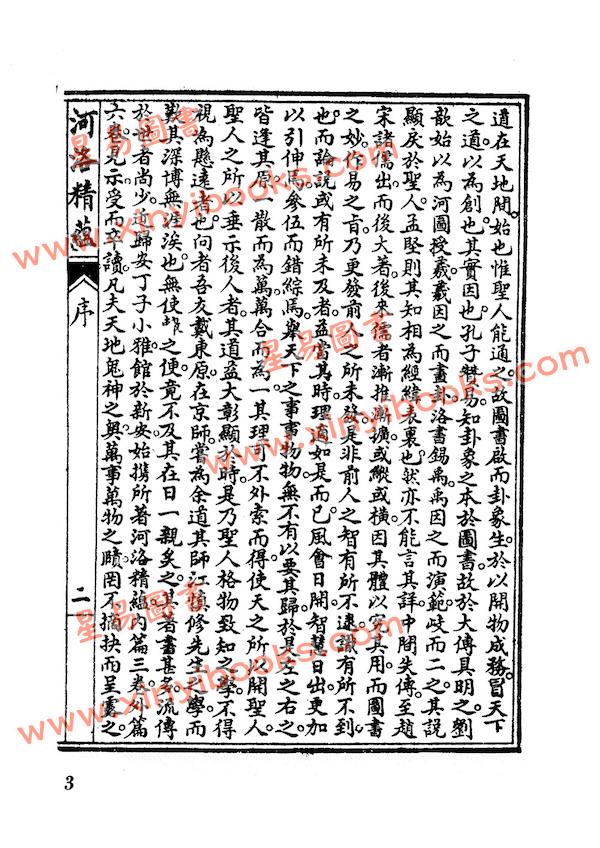 道在天地開始也惟聖人能通之故圖書啟而卦象生於以開物成務冒天下
之道以為創也其實因也孔子贊易知卦象之本於圖書故於大傳具明之劉
歆始以為河圖授羲羲因之而畫卦洛書錫禹禹因之而演範歧而二之其說
顯戾於聖人孟堅則其知相為經緯表裏也然亦不能言其詳中間失傳至趙
宋諸儒出而後大著後來儒者漸推漸擴或縱或橫因其體以究其用而圖書
之妙作易之旨乃更發前人之所未發是非前人之智有所不逮識有所不到
也而論說或有所未及者益當其時理適如是而已風會日開智慧日出更加
以引伸焉參伍而錯綜焉舉天下之事事物物無不有以要其歸於是左之右之
皆逢其原一散而為萬萬合而為一其理可不外索而得使天之所以開聖人
聖人之所以垂示後人者其道益大彰顯於時是乃聖人格物致知之學不得
視為懸遠者也向者吾友戴東原在京師嘗為余道其師江慎修先生之學而
歎其深博無涯涘也無使之便竟不及其在日一親炙之其著書甚多流傳
於世者尚少適歸安丁子小雅館於新安始携所著河洛精蘊內篇三卷外篇
六卷見示受而卒讀凡夫天地鬼神之奧萬事萬物之賾罔不摘抉而呈露之
河洛精蘊
序
二
3
星易圖書
www.xinyibooks.com
星易圖書
www.xinyibooks.com
星易圖書
www.xinyibooks.com